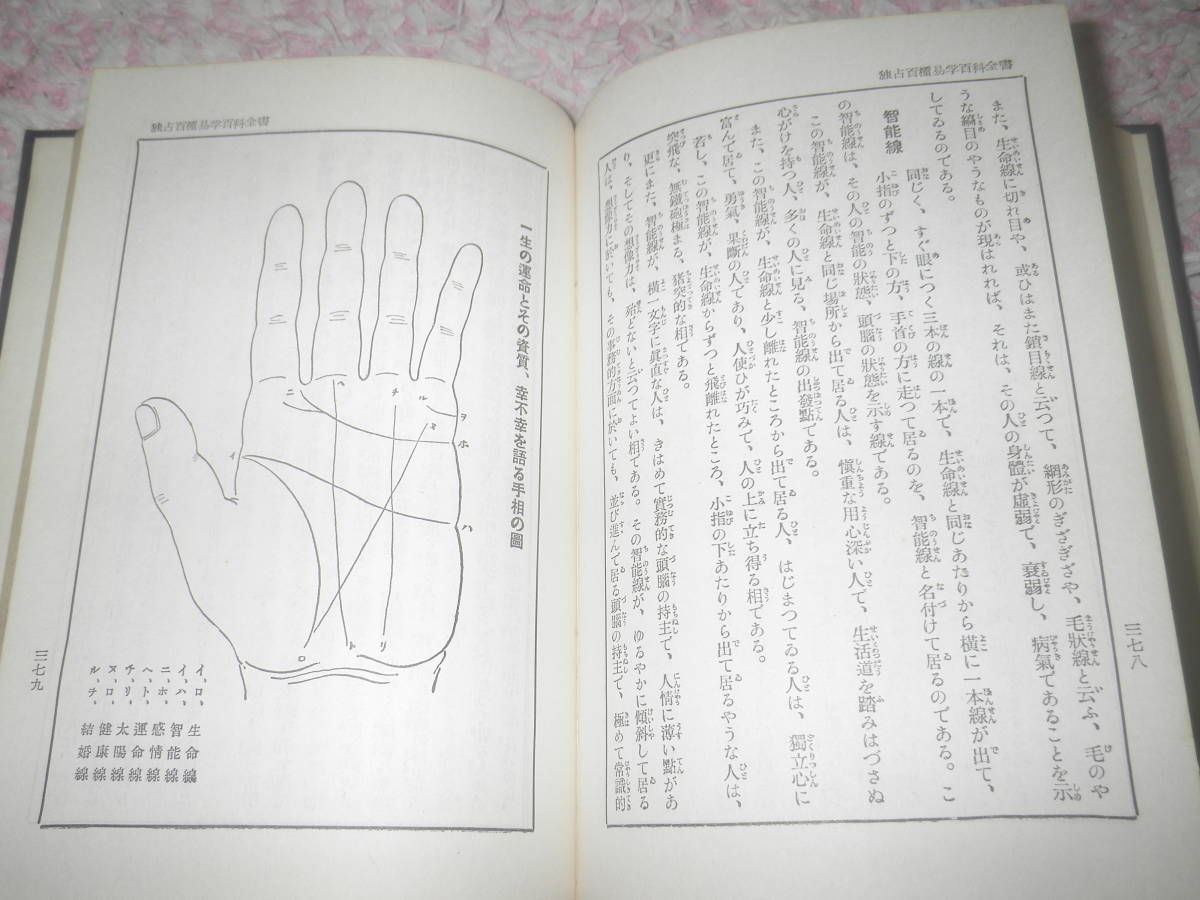 独占百種易学百科全書
三七八
また、生命線に切れ目や、或ひはまた鎖目線と云つて、網形のぎざぎざや、毛狀線と云ふ、毛のや
うな縞目のやうなものが現はれれば、それは、その人の身體が虛弱で、衰弱し、病氣であることを示
してゐるのである。
智能線　同じく、すぐ眼につく三本の線の一本で、生命線と同じあたりから橫に一本線が出て、
小指のずつと下の方、手首の方に走つて居るのを、智能線と名付けて居るのである。こ
の智能線は、その人の智能の狀態、頭腦の狀態を示す線である。
この智能線が、生命線と同じ場所から出て居る人は、愼重な用心深い人で、生活道を踏みはづさぬ
心がけを持つ人、多くの人に見る、智能線の出發點である。
また、この智能線が、生命線と少し離れたところから出て居る人、はじまつてゐる人は、獨立心に
富んで居て、勇氣、果斷の人であり、人使ひが巧みで、人の上に立ち得る相である。
若し、この智能線が、生命線からずつと飛離れたところ、小指の下あたりから出て居るやうな人は、
突飛な、無鐵砲極まる、猪突的な相である。
更にまた、智能線が、橫一文字に眞直な人は、きはめて實務的な頭腦の持主で、人情に薄い點があ
り、そしてその想像力は、殆どないと云つてよい相である。その智能線が、ゆるやかに傾斜して居る
人は、想像力に於いても、その事務的方面に於いても、並び進んで居る頭腦の持主で、極めて常識的
独占百種易学百科全書
一生の運命とその資質、幸不幸を語る手相の圖
ニ
ヘ
チ
ル
ヲ
ホ
ヌ
イ
ハ
ロ
ト
リ
イ、ロ、　生命線
イ、ハ、　智能線
ニ、ホ、　感情線
ヘ、ト、　運命線
チ、リ、　太陽線
ヌ、ロ、　健康線
ル、チ、　結婚線
三七九